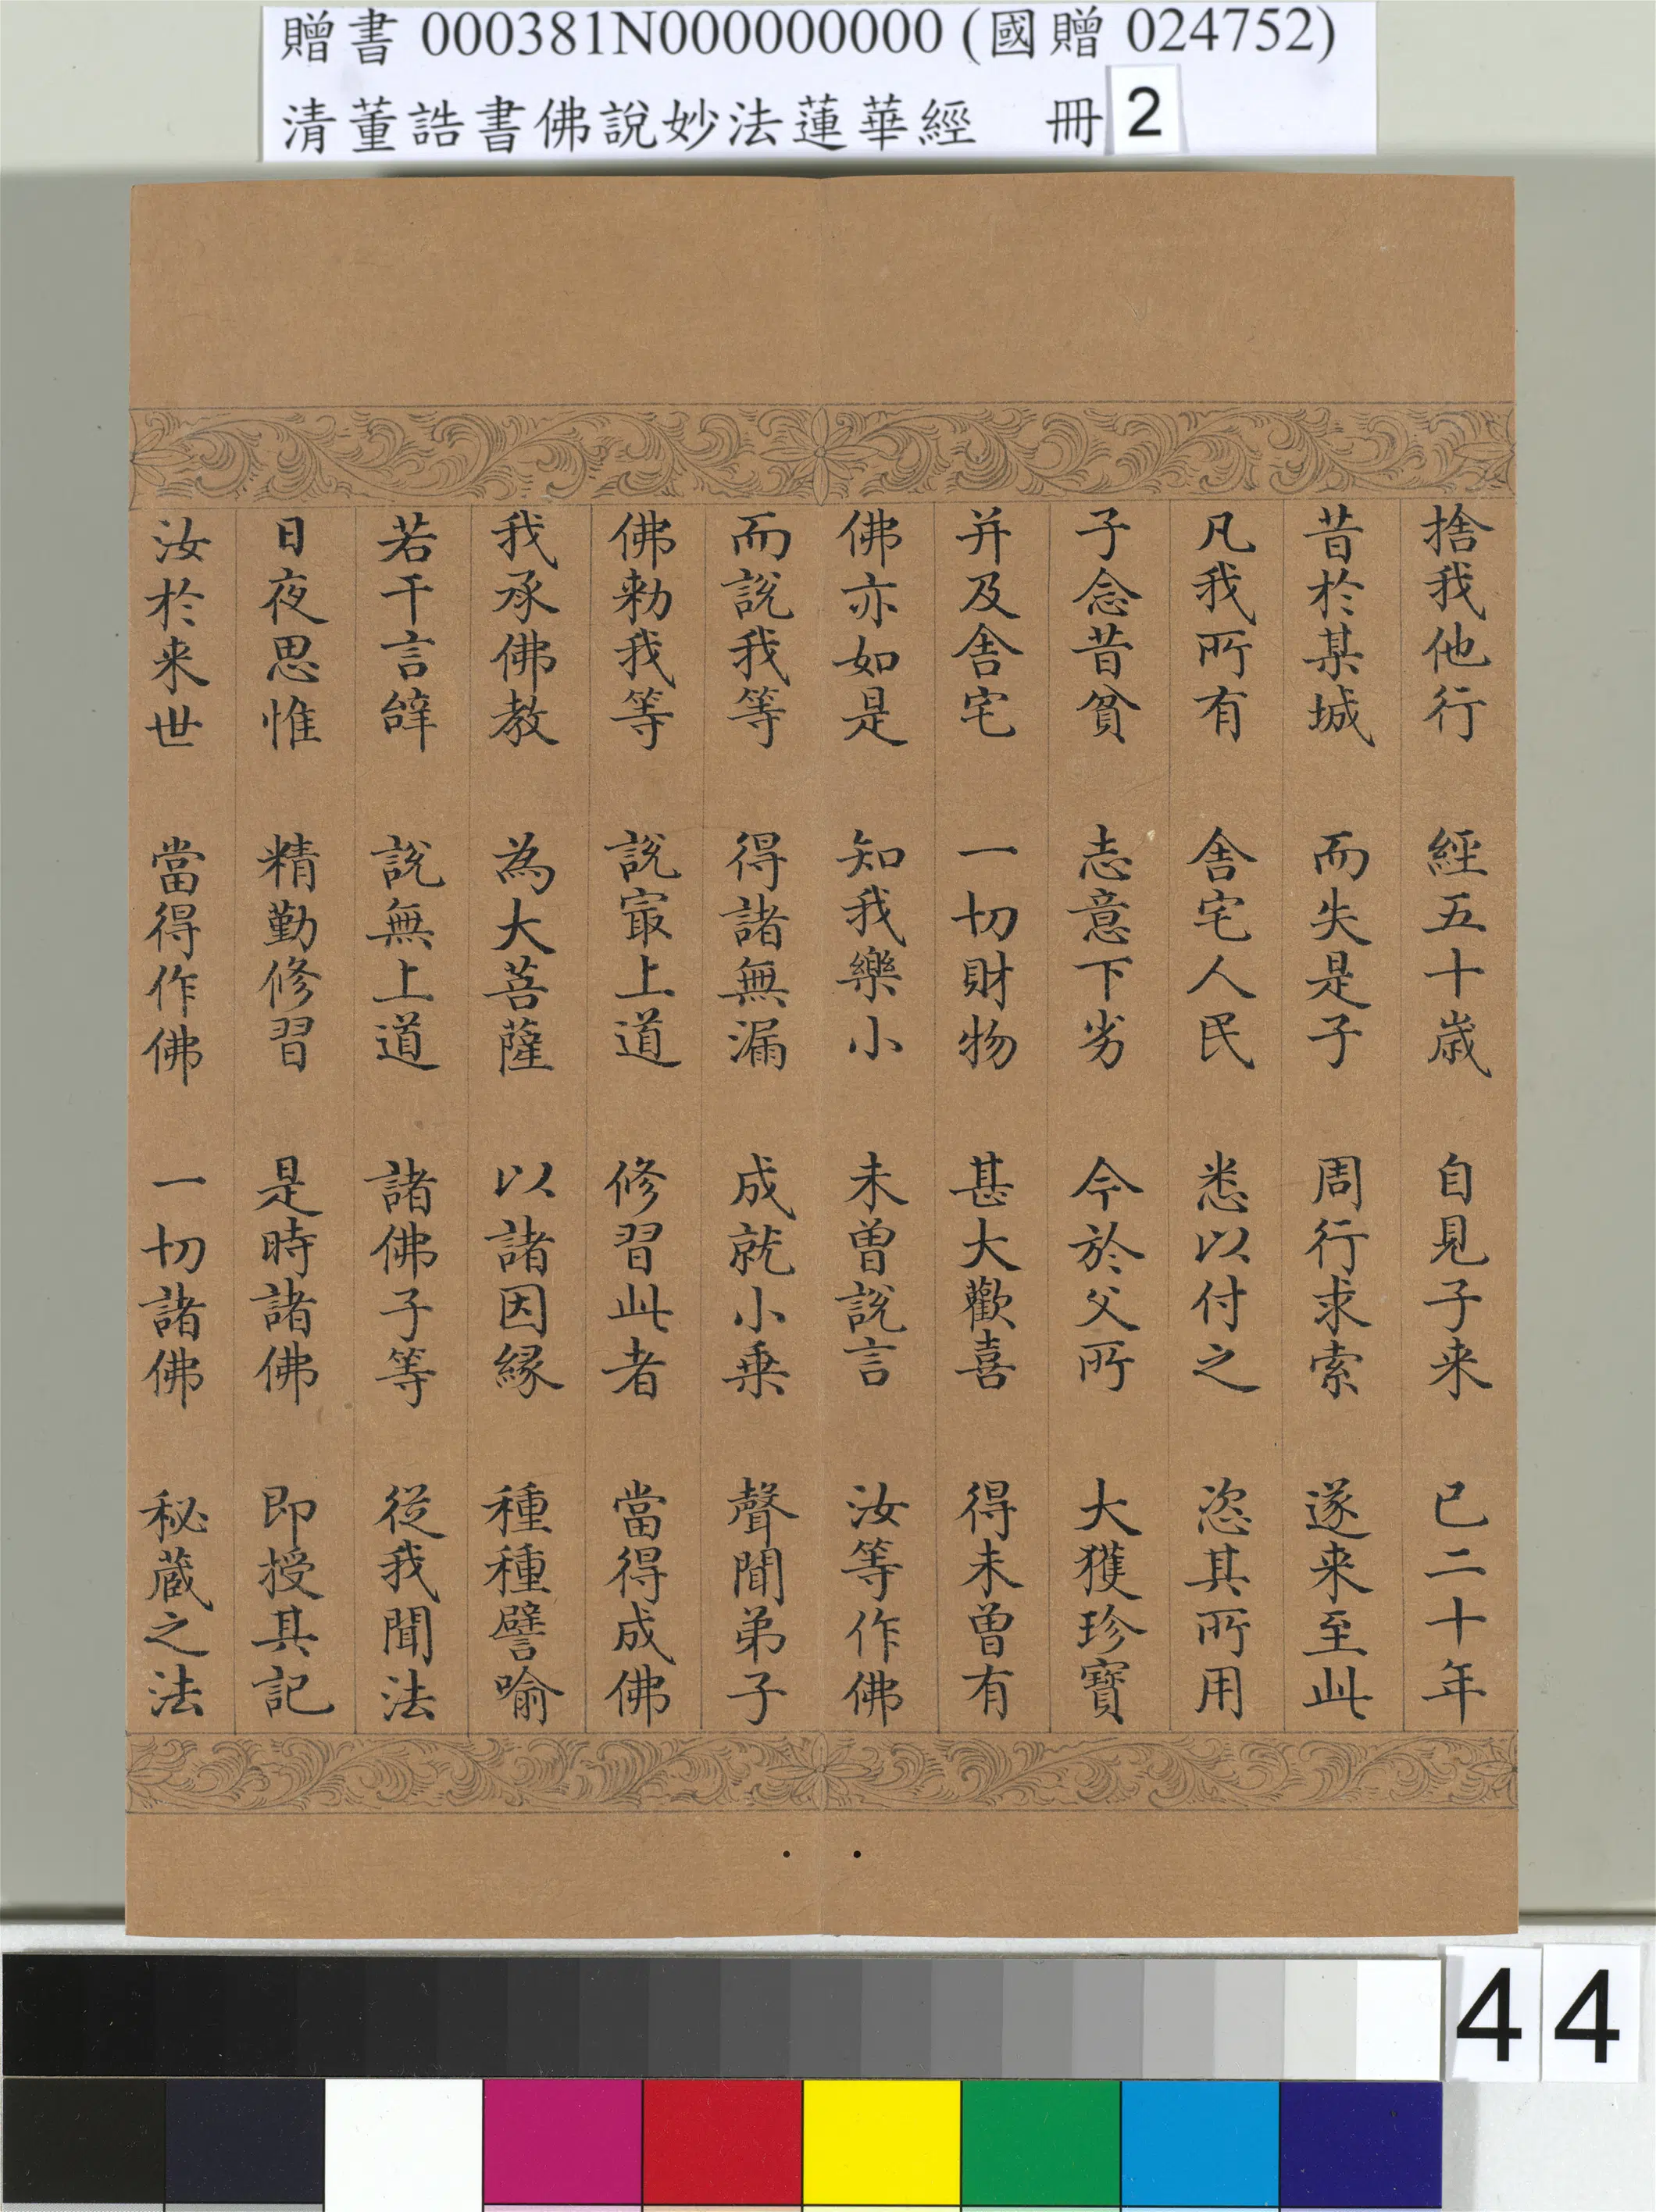 贈書 000381N000000000 (國贈 024752)
清董誥書佛說妙法蓮華經 冊 2
捨我他行 經五十歲 自見子来 已二十年
昔於某城 而失是子 周行求索 遂来至此
凡我所有 舍宅人民 悉以付之 恣其所用
子念昔貧 志意下劣 今於父所 大獲珍寶
并及舍宅 一切財物 甚大歡喜 得未曾有
佛亦如是 知我樂小 未曾說言 汝等作佛
而說我等 得諸無漏 成就小乗 聲聞弟子
佛勑我等 說冣上道 修習此者 當得成佛
我承佛教 為大菩薩 以諸因縁 種種譬喻
若干言辭 說無上道 諸佛子等 從我聞法
日夜思惟 精勤修習 是時諸佛 即授其記
汝於来世 當得作佛 一切諸佛 秘蔵之法
44